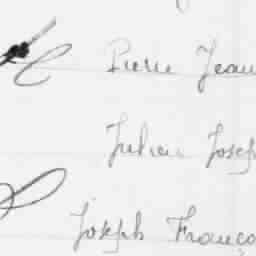 Pierre Jean
Julien Josep
Joseph Franço